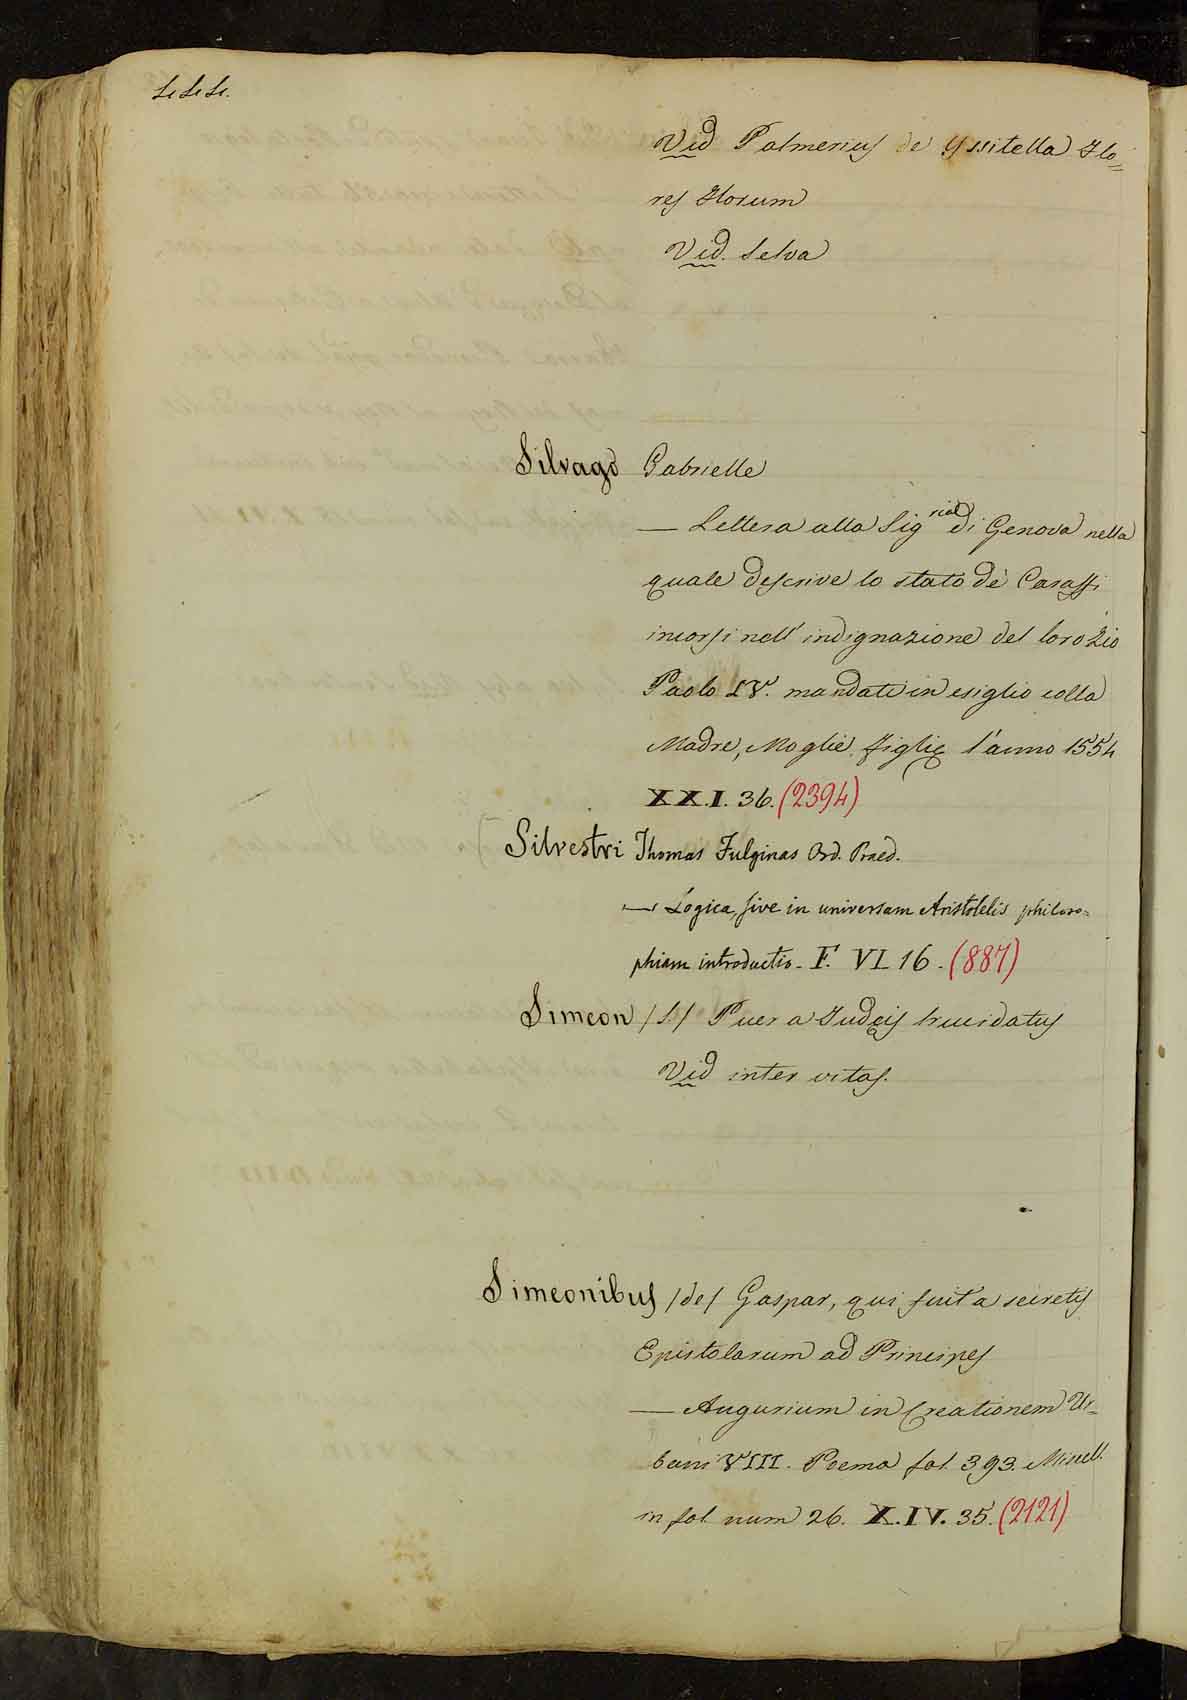 Vid Palmerius de Yssitella Flo=
res Florum
Vid. Selva
Silvago Gabrielle
— Lettera alla Sig.ria di Genova nella
quale descrive lo stato dè Caraffi
incorsi nell' indignazione del loro Zio
Paolo IV. mandati in esiglio colla
Madre, Moglie, figlie l'anno 1554
XX.I. 36. (2394)
Silvestri Thomas Fulginas Ord. Praed.
— Logica, sive in universam Aristotelis philoso=
phiam introductio. F. VI 16. (887)
Simeon /S./ Puer a Judęis trucidatus
Vid inter vitas.
Simeonibus /de/ Gaspar, qui fuit a secretis
Epistolarum ad Principes
— Augurium in Creationem Ur=
bani VIII. Poema fol. 393. Miscell.
in fol. num 26. X.IV. 35. (2121)